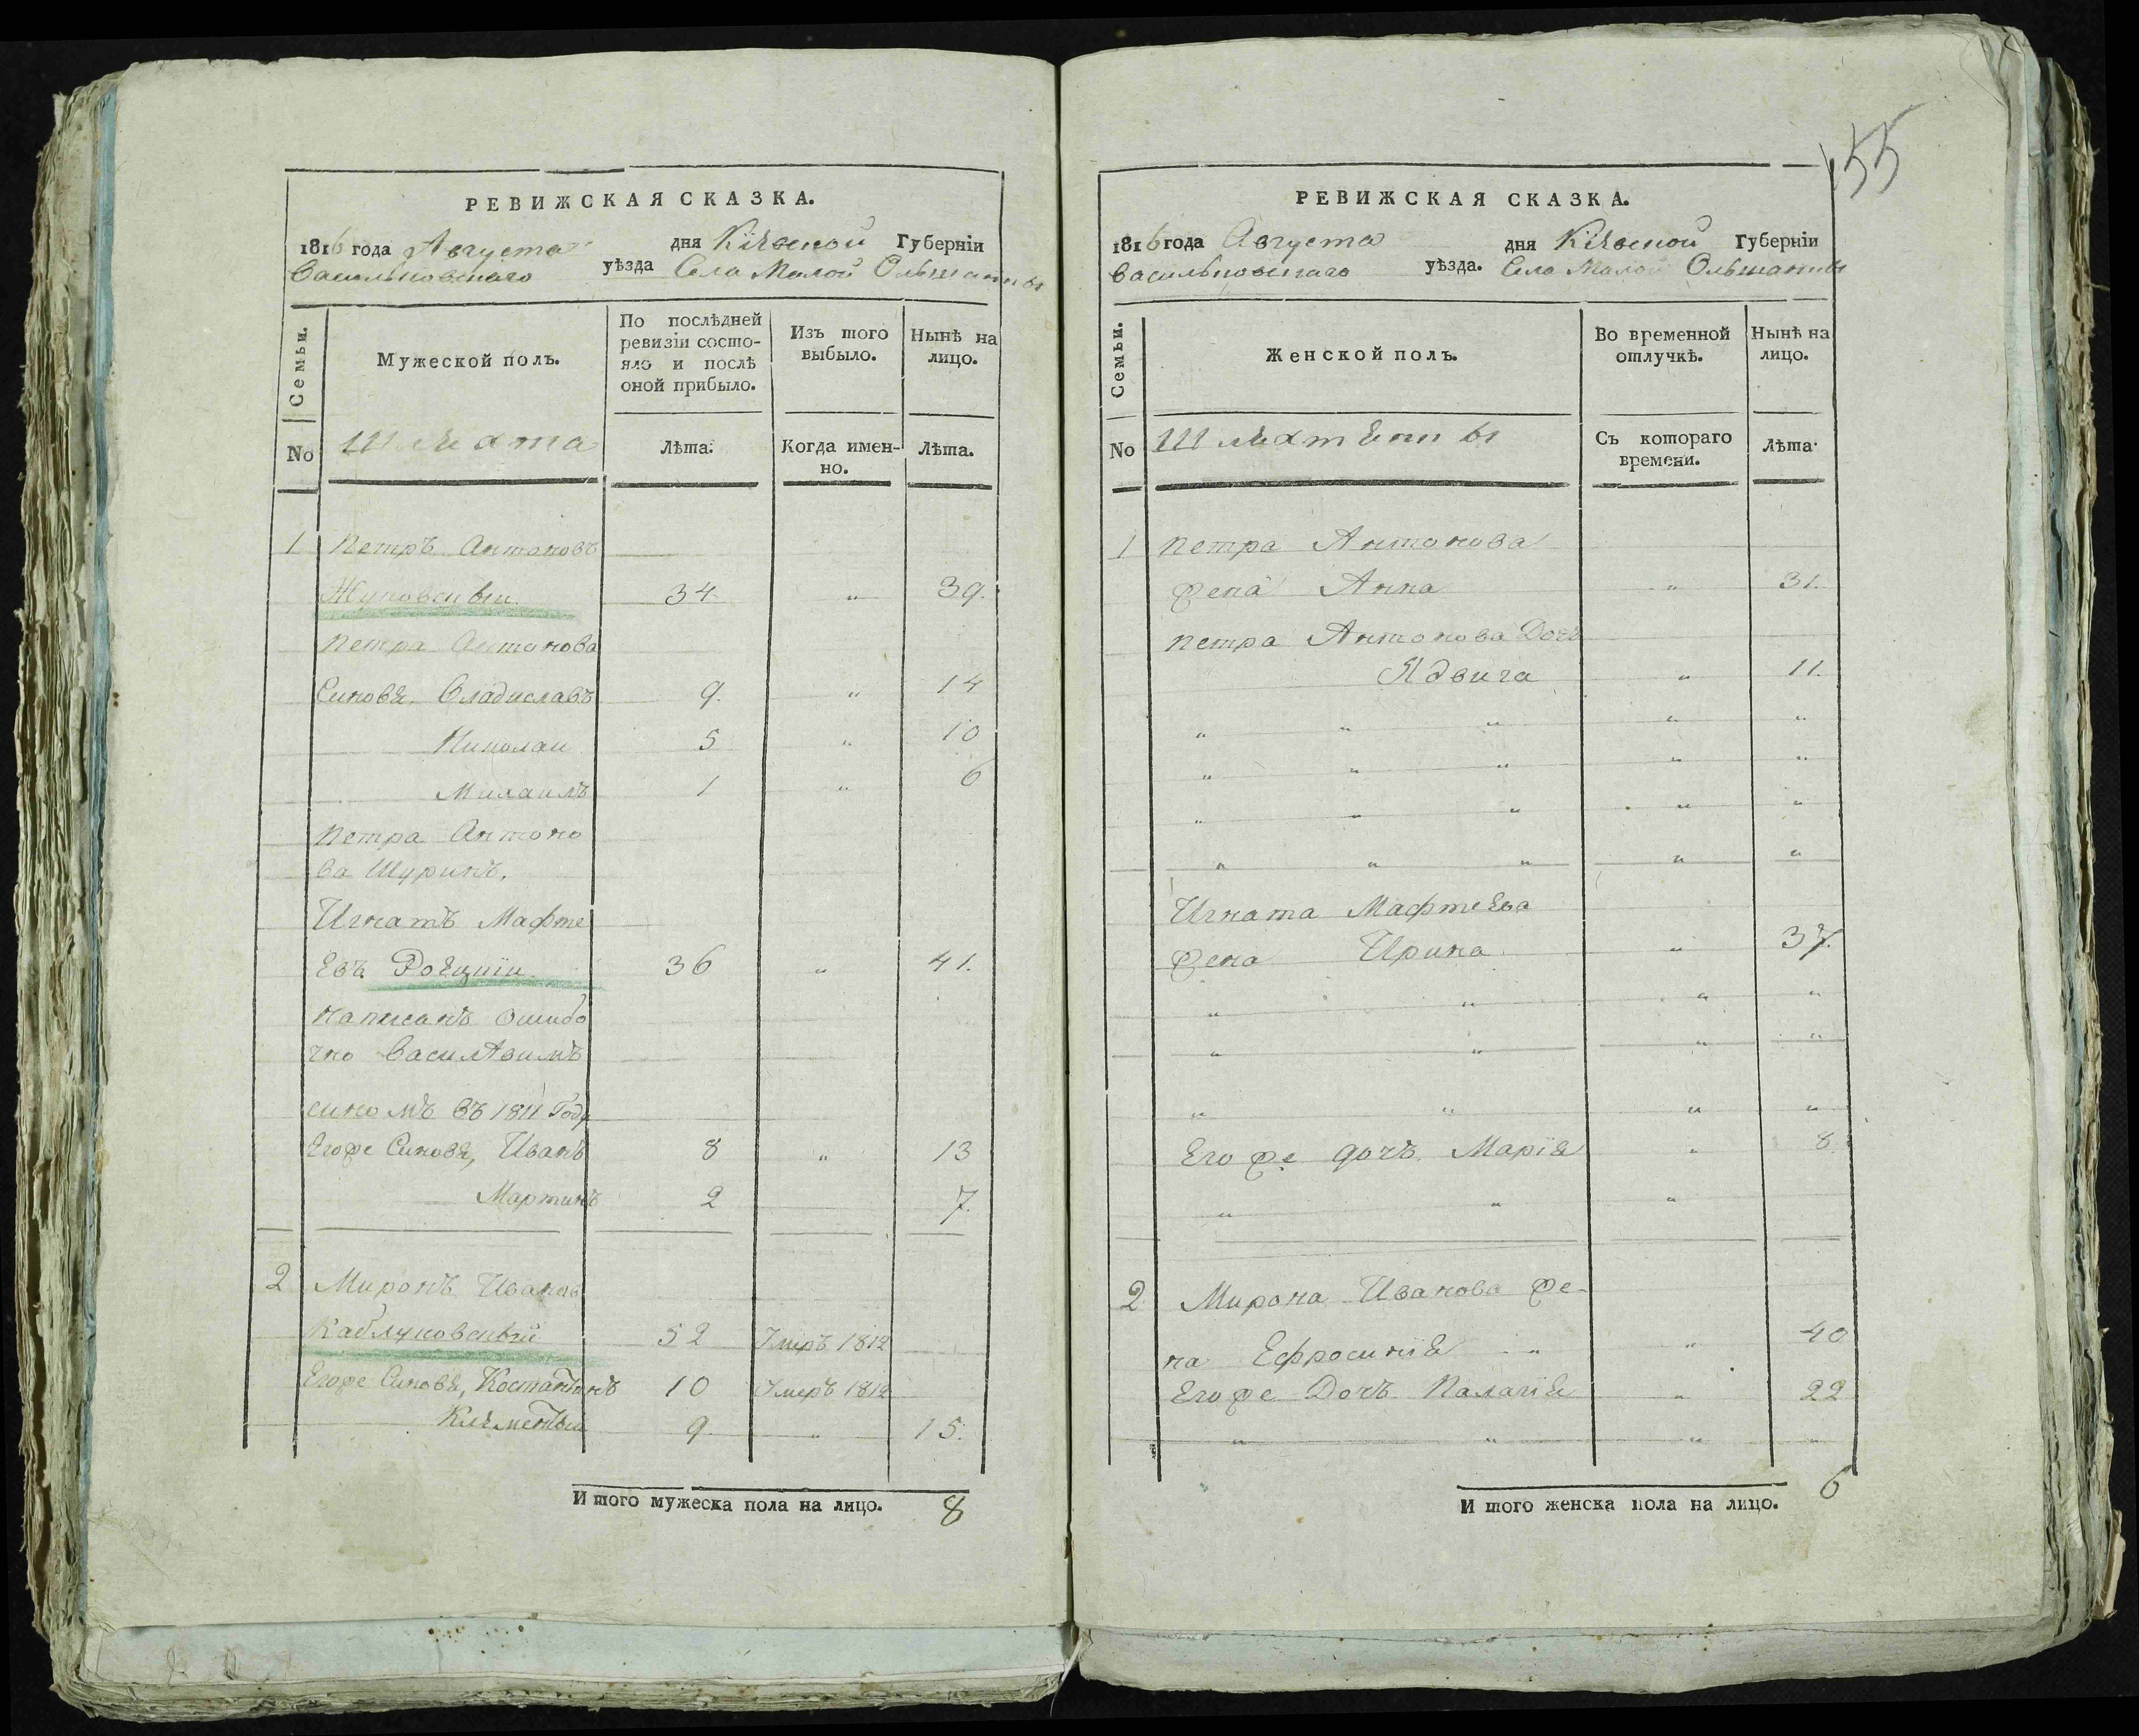 155
РЕВИЖСКАЯ СКАЗКА.
1816 года Августа дня Кіевской Губерніи
Васильковскаго уѣзда Села Малой Ольшанки
Семьи.
Мужеской полъ.
По послѣдней ревизіи состояло и послѣ оной прибыло.
Изъ того выбыло.
Нынѣ на лицо.
No Шляхта Лѣта. Когда именно. Лѣта.
1 Петръ Антоновъ
Жуковскій 34. " 39.
Петра Антонова
Синовя, Владиславъ 9. " 14
Николаи 5 " 10
Михаилъ 1 " 6
Петра Антоно
ва Шуринъ,
Игнатъ Мафте
евъ 36 " 41.
написанъ ошибо
чно Василѣвимъ
синомъ въ 1811 Году
Егоже Синовя, Иванъ 8 " 13
Мартинъ 2 7.
2 Миронъ Ивановъ
Каблуковскій 52 Умръ 1812
Егоже Синовя, Костантинъ 10 Умеръ 1812
Клементый 9. " 15.
И того мужеска пола на лицо. 8
РЕВИЖСКАЯ СКАЗКА.
1816 года Августа дня Кіевской Губерніи
Васильковскаго уѣзда. Села Малой Ольшанки
Семьи.
Женской полъ.
Во временной отлучкѣ.
Нынѣ на лицо.
No Шляхтенки Съ котораго времени. Лѣта.
1 Петра Антонова
жена Анна " 31.
Петра Антонова Дочъ
Ядвига " 11.
" " " " "
" " " " "
" " " " "
" " " " "
Игната Мафтеева
жена Ирина " 37.
" " " "
" " " "
" " " "
Егоже дочъ Марія " 8.
" " "
2 Мирона Иванова же-
на Ефросинія " " 40
Егоже Дочъ Палагія " 22
" " " "
И того женска пола на лицо. 6